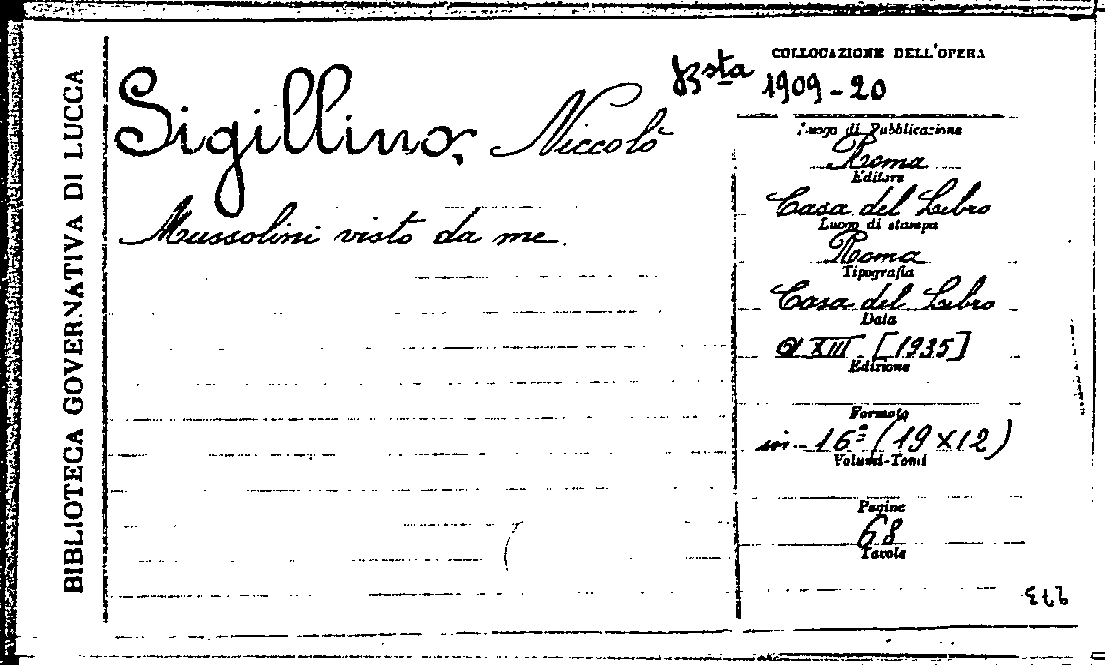 BIBLIOTECA GOVERNATIVA DI LUCCA
Sigillino, Niccolò
Mussolini visto da me.
COLLOCAZIONE DELL'OPERA
Bsta 1909-20
Luogo di Pubblicazione
Roma
Editore
Casa del Libro
Luogo di stampa
Roma
Tipografia
Casa del Libro
Data
a XIII [1935]
Edizione
Formato
in-16º (19x12)
Volumi-Tomi
Pagine
68
Tavole
273